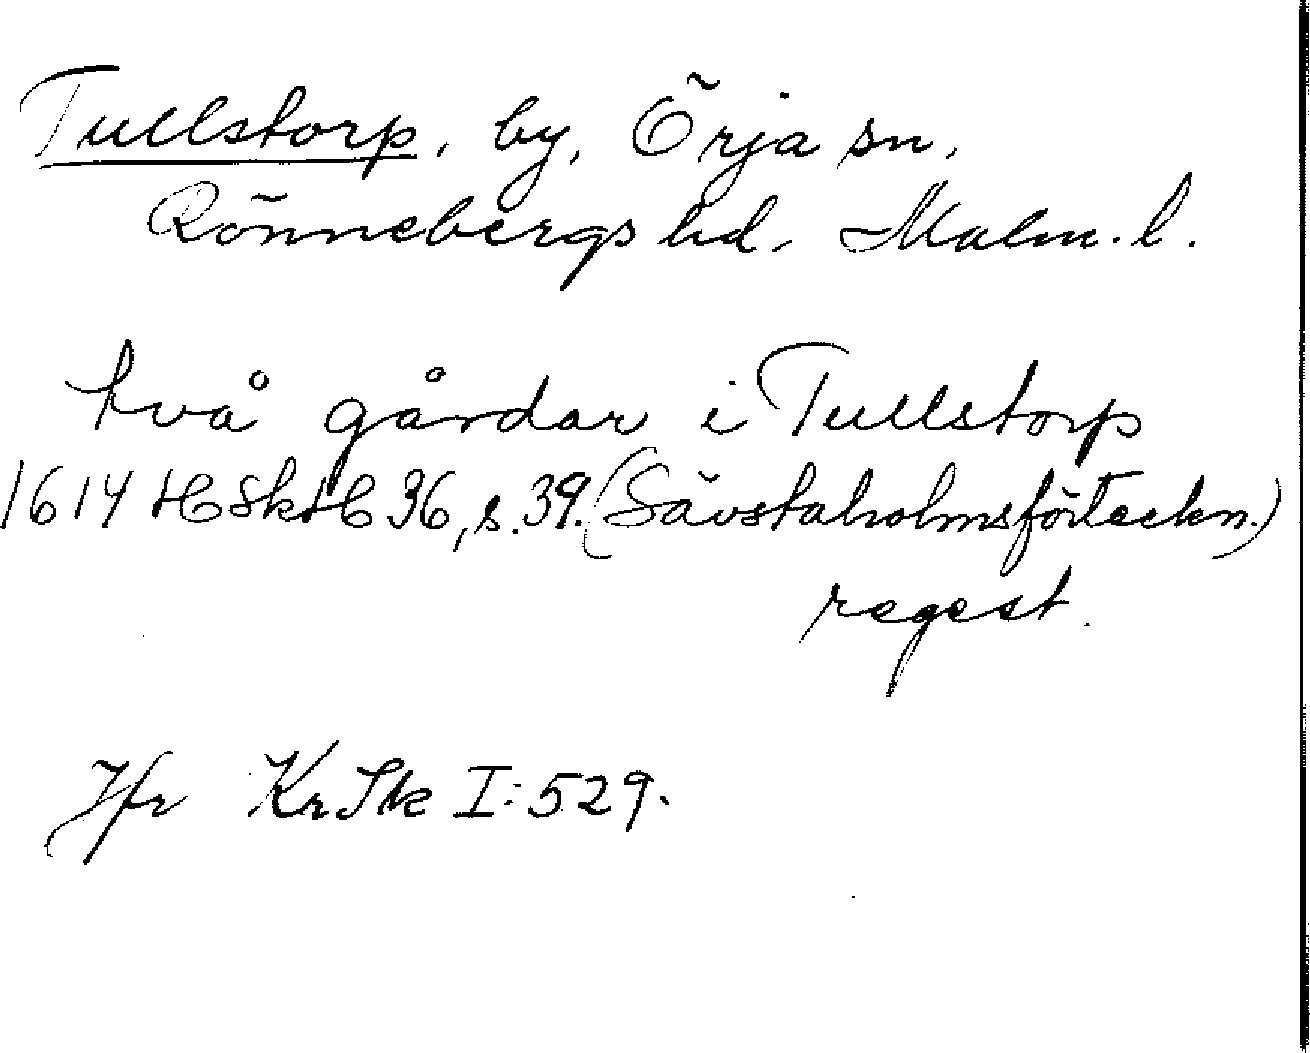 Tullstorp, by, Örja sn,
Rönnebergs hd, Malm. l.
två gårdar i Tullstorp
1614 HSkH 36, s. 39. (Sävstaholmsförteckn.)
regest.
Jfr KrSk I: 529.